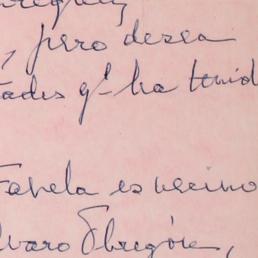 , pero desea
tades qᵉ ha tenid
Favela es vecino
lvaro Obregón,